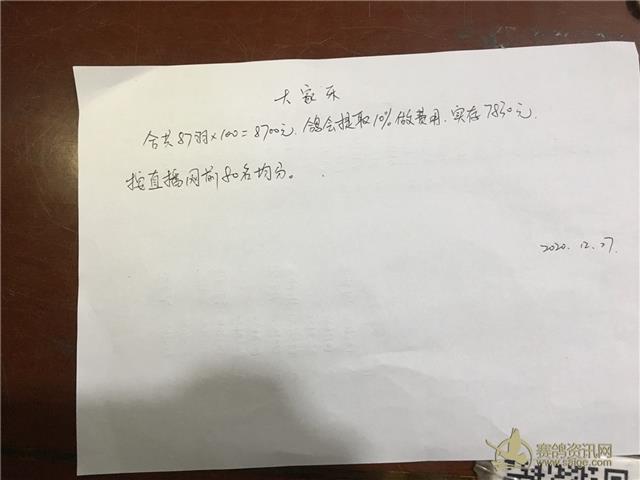 大家乐
合共87羽×100=8700元.鸽会提取10%做费用.实存7830元.
按直播网前80名均分。
2020.12.27.
赛鸽资讯网
www.skjge.com